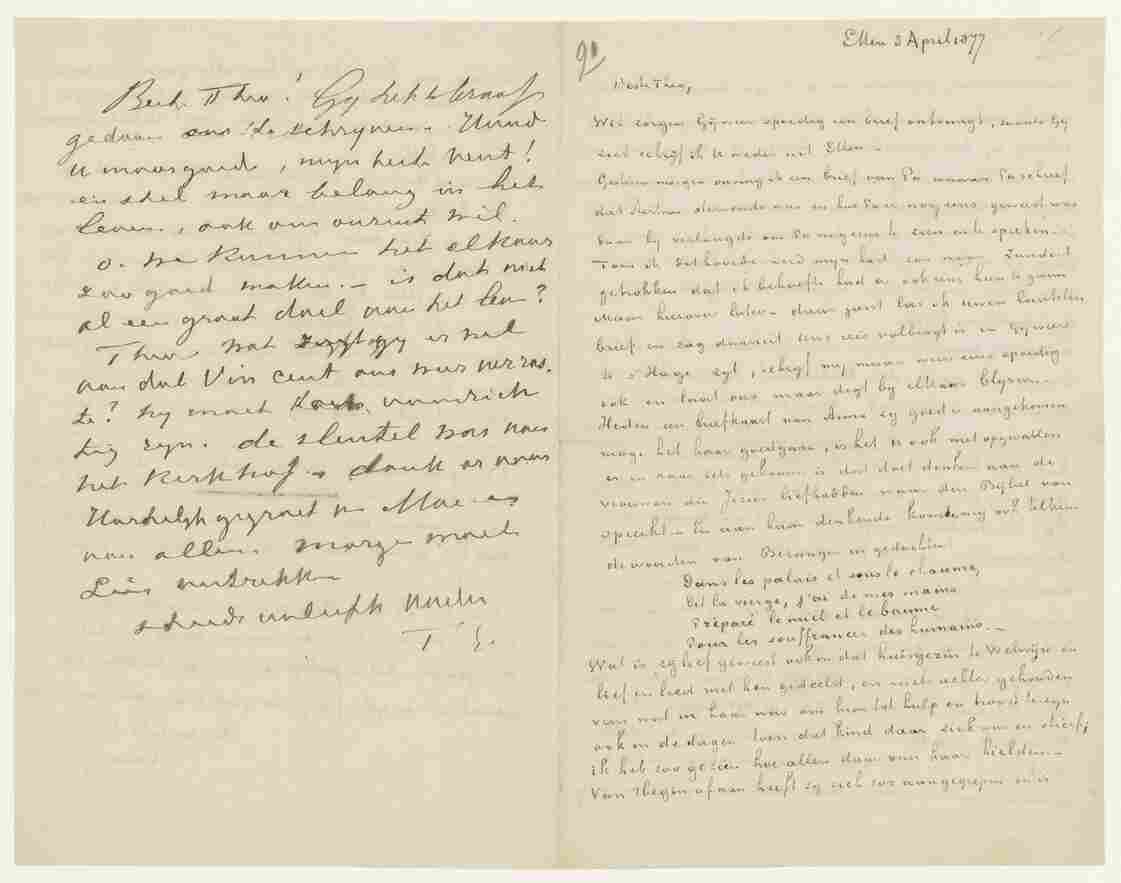 Beste Theo! Gij hebt braaf
gedaan ons te schrijven. Houd
u maar goed, mijn beste vent!
en stel maar belang in het
leven, ook om onzent wil.
o. we kunnen het elkaar
zoo goed maken. – is dat niet
al een groot doel van het leven?
Theo wat zegt gij er wel
van dat Vincent ons weer verras-
te? hij moet voorzich
tig zijn. de sleutel was naar
het Kerkhof – dank er voor
Hartelijk gegroet van Moe en
van allen. morgen moet
Lies vertrekken
steeds uw liefh vader
91
Etten 8 April 1877
Beste Theo,
Wij zorgen Gij weer spoedig een brief ontvangt, zooals Gij
ziet schrijf ik U weder uit Etten –
Gisteren morgen ontving ik een brief van Pa waarin Pa schreef
dat Aertsen stervende was en hoe Pa er nog eens geweest was
daar hij verlangde om Pa nog eens te zien en te spreken. –
Toen ik dat hoorde werd mijn hart zoo naar Zundert
getrokken dat ik behoefte had er ook eens heen te gaan
Maar hierover later – daar juist las ik uwen laatsten
brief en zag daaruit Uwe reis volbragt is en Gij weer
te s'Hage zijt, schrijf mij, maar weer eens spoedig
ook en laat ons maar digt bij elkaar blijven. –
Heden een briefkaart van Anna zij goed is aangekomen
moge het haar goed gaan, is het er ook niet op gevallen
er in haar iets gekomen is dat doet denken aan de
vrouwen die Jezus liefhebben waar den Bijbel van
spreekt – En aan haar denkende komen mij ook telkens
de woorden van Béranger in gedachten
Dans les palais et sous le chaume,
Dit la vierge, j'ai de mes mains
Préparé le miel et le baume
Pour les souffrances des humains. –
Wat is zij lief geweest ook in dat huisgezin te Welwijn en
lief en leed met hen gedeeld, en niets achter gehouden
van wat in haar was om hen tot hulp en troost te zijn
ook in de dagen toen dat kind daar ziek was en stierf,
ik heb zoo gezien hoe allen daar van haar hielden –
Van 't begin af aan heeft zij zich zoo aangegrepen om in